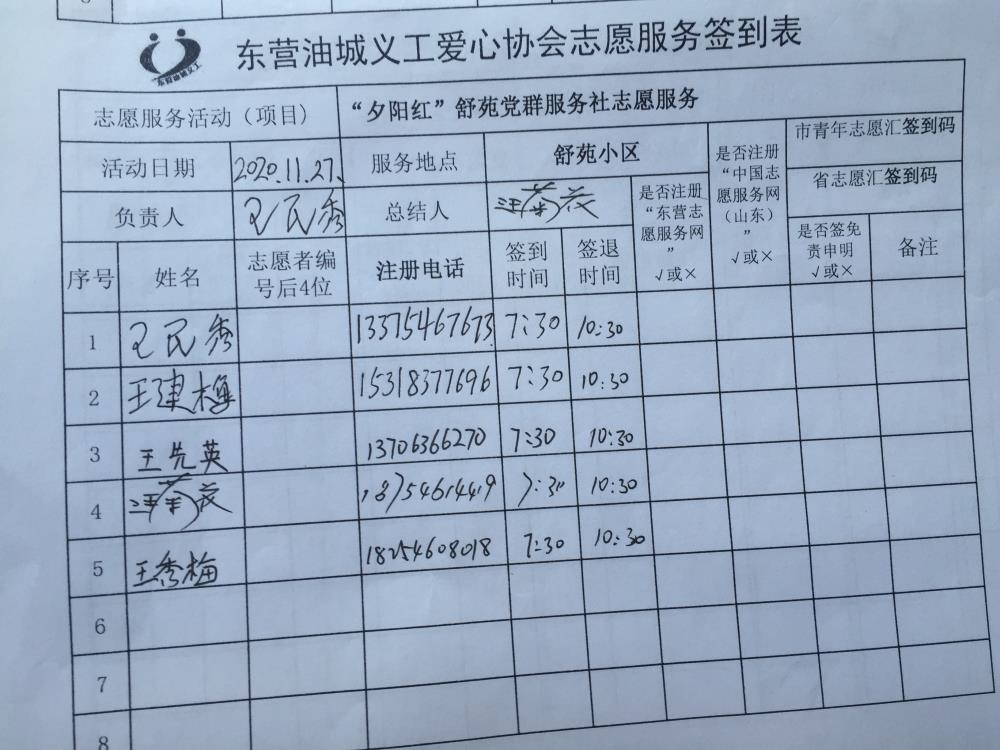 东营油城义工爱心协会志愿服务签到表
志愿服务活动（项目） “夕阳红”舒苑党群服务社志愿服务
活动日期 2020.11.27. 服务地点 舒苑小区 是否注册“中国志愿服务网（山东）” √或× 市青年志愿汇签到码
省志愿汇签到码
负责人 王民秀 总结人 是否注册“东营志愿服务网” √或×
序号 姓名 志愿者编号后4位 注册电话 签到时间 签退时间 是否签免责申明 √或× 备注
1 王民秀 13375467673 7:30 10:30
2 王建梅 15318377696 7:30 10:30
3 王先英 13706366270 7:30 10:30
4 18754614419 7:30 10:30
5 王秀梅 18254608018 7:30 10:30
6
7
8